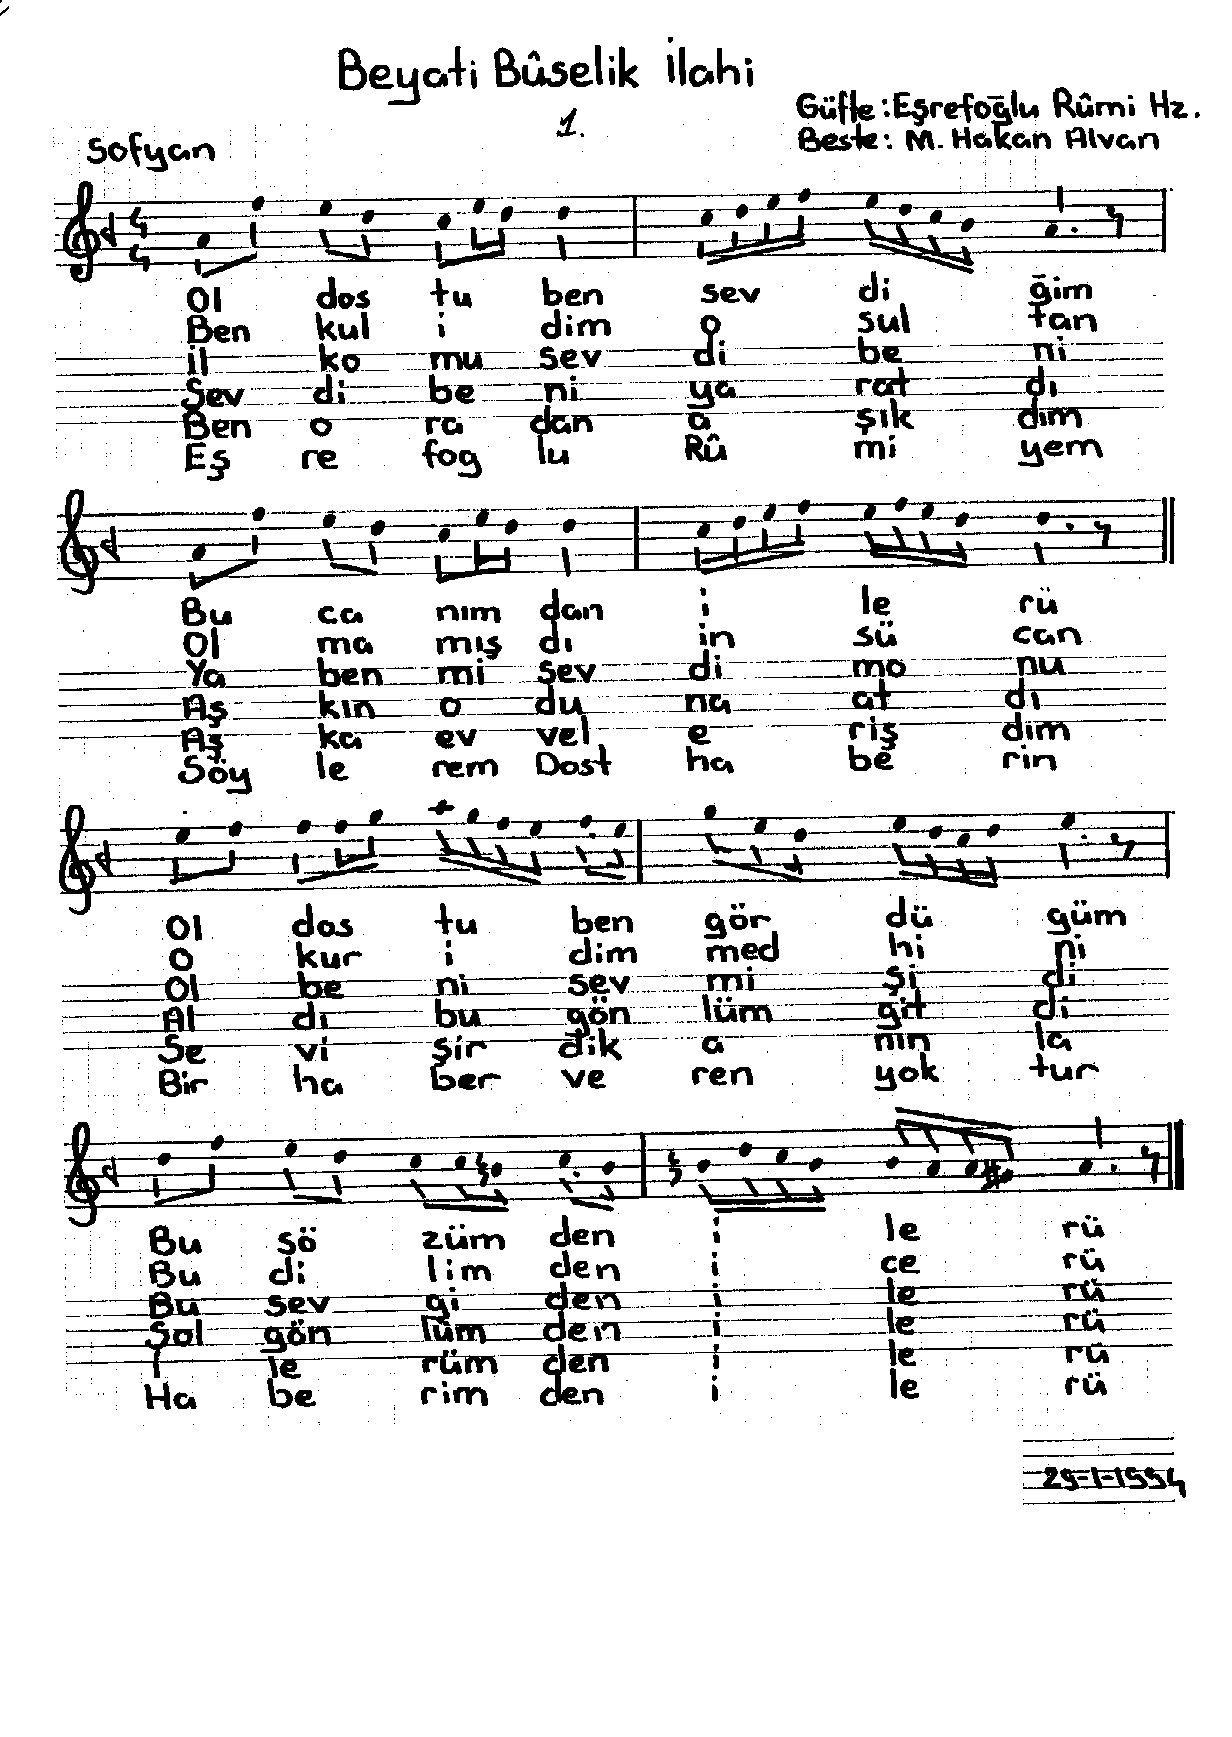 Beyati Bûselik İlahi
1.
Güfte: Eşrefoğlu Rûmi Hz.
Beste: M. Hakan Alvan
Sofyan
4
4
Ol dos tu ben sev di ğim
Ben kul i dim o sul tan
il ko mu sev di be ni
Sev di be ni ya rat dı
Ben o ra dan a şık dım
Eş re fog lu Rû mi yem
Bu ca nım dan i le rü
Ol ma mış dı in sü can
Ya ben mi sev di mo nu
Aş kın o du na at dı
Aş ka ev vel e riş dim
Söy le rem Dost ha be rin
Ol dos tu ben gör dü güm
O kur i dim med hi ni
Ol be ni sev mi şi di
Al dı bu gön lüm git di
Se vi şir dik a nın la
Bir ha ber ve ren yok tur
Bu sö züm den i le rü
Bu di lim den i ce rü
Bu sev gi den i le rü
Şol gön lüm den i le rü
İ le rüm den i le rü
Ha be rim den i le rü
29-1-1994